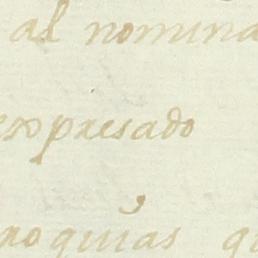 al nomina
expresado
roquias q